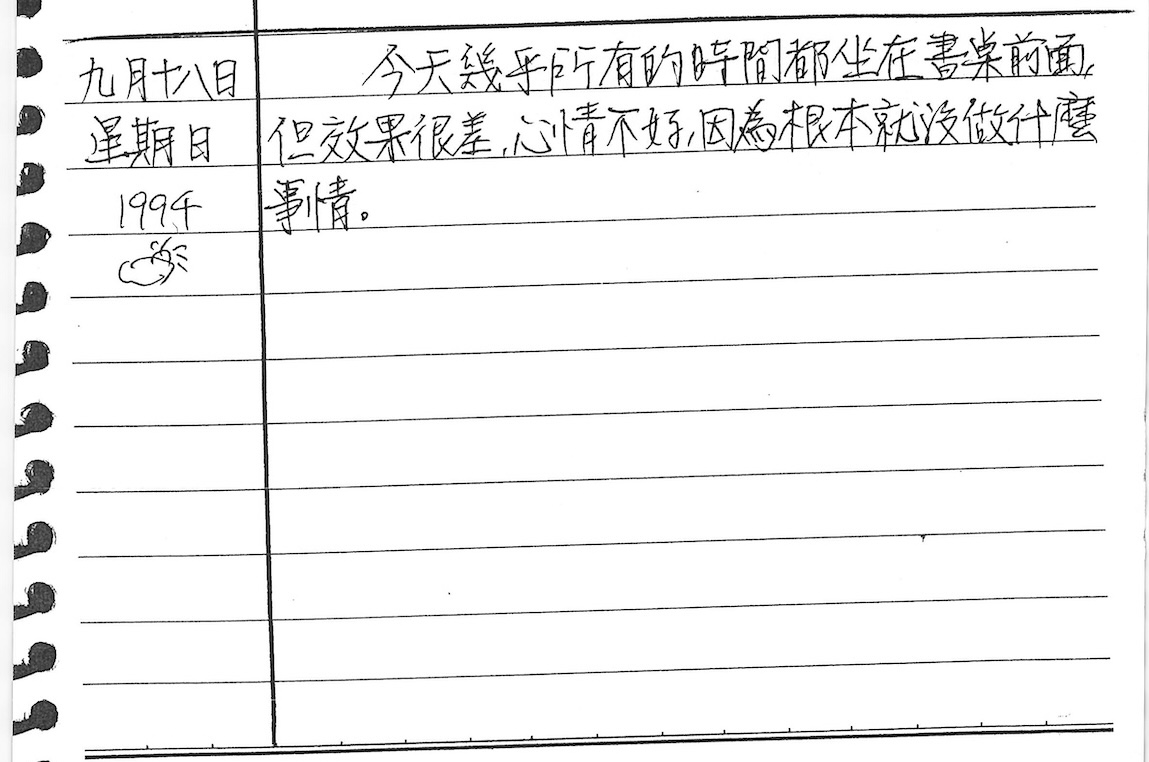 九月十八日
星期日
1994
今天幾乎所有的時間都坐在書桌前面,
但效果很差,心情不好,因為根本就沒做什麼
事情。